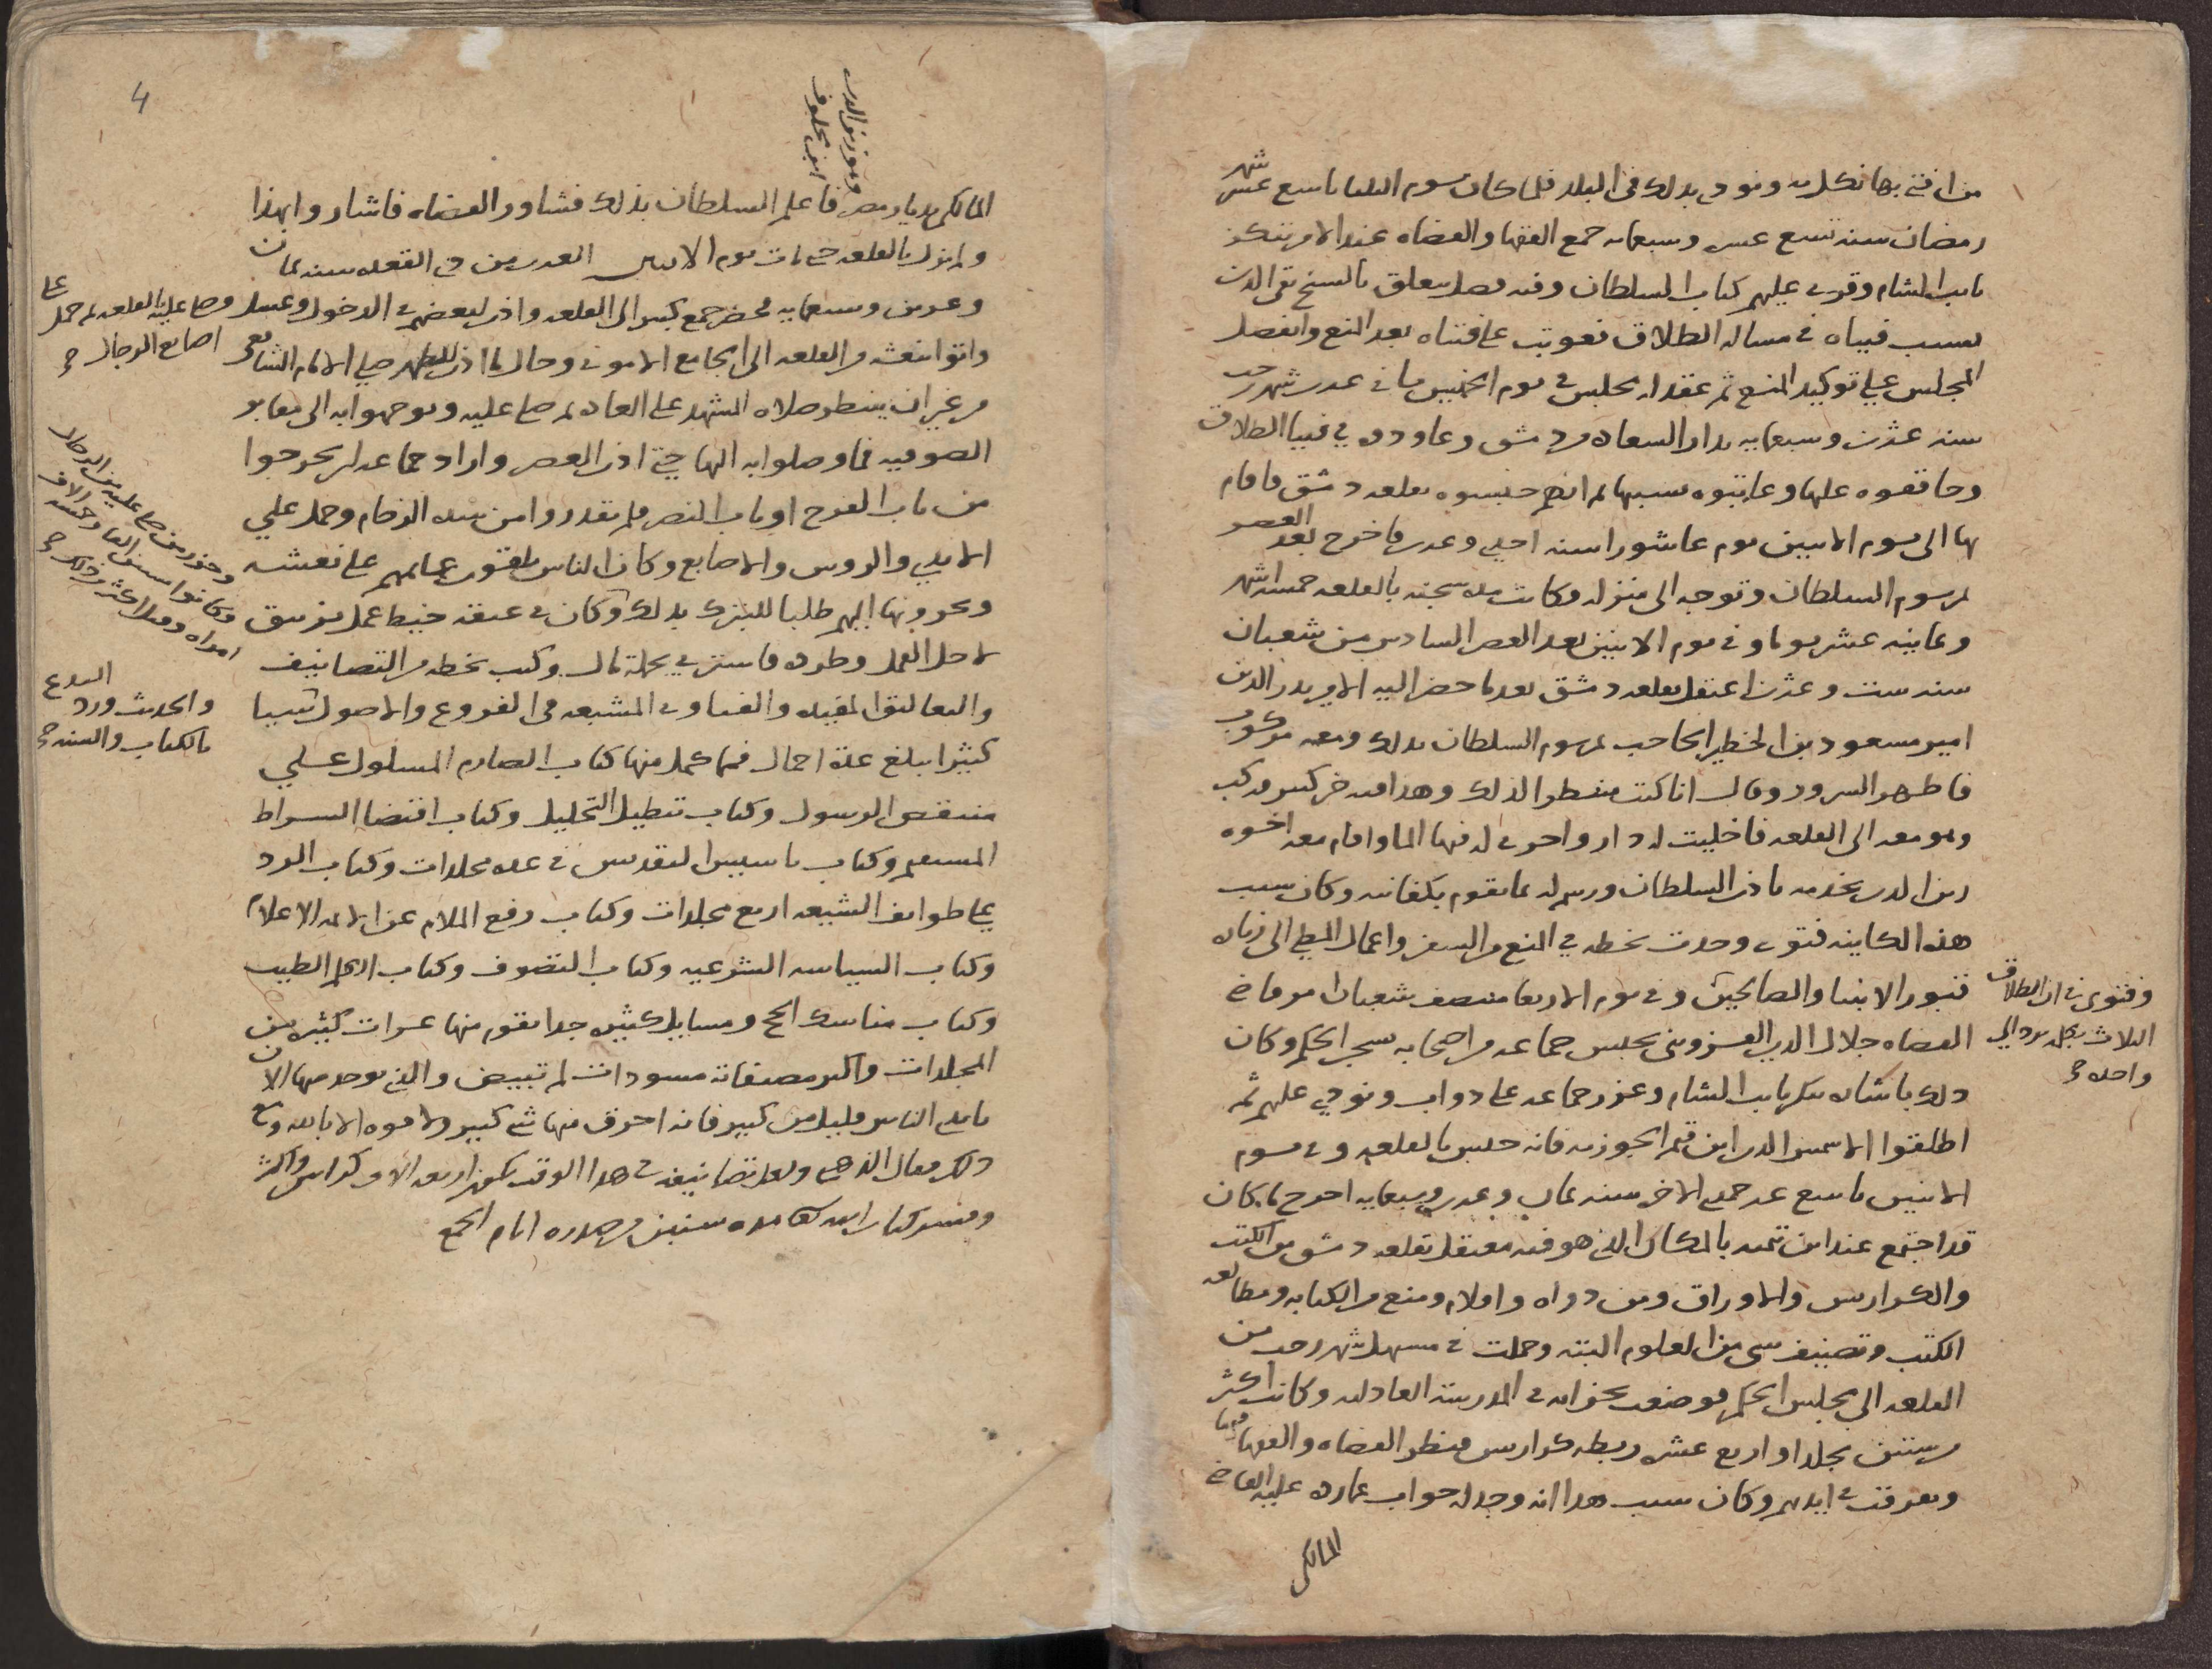 من افتى بها نكل به ونودي بذلك في البلد فلما كان يوم الثلثا تاسع عشر شهر
رمضان سنه تسع عشره وسبعمايه جمع الفقها والقضاه عند الامير تنكز
نايب الشام وقرى عليهم كتاب السلطان وفيه فصل يتعلق بالشيخ تقي الدين
بسبب فتياه في مساله الطلاق فعوتب على فتياه بعد المنع وانفصل
المجلس على توكيد المنع ثم عقد له مجلس في يوم الخميس ثاني عشر شهر رجب
سنه عشرين وسبعمايه بدار السعاده بدمشق وعاودوه في فتيا الطلاق
وحاققوه عليها وعاتبوه بسببها ثم انهم حبسوه بقلعه دمشق فاقام
بها الى يوم الاثنين يوم عاشورا سنه احدي وعشرين فاخرج بعد العصر
بمرسوم السلطان وتوجه الى منزله وكانت مده سجنه بالقلعه خمسه اشهر
وثمانيه عشر يوما وفي يوم الاثنين بعد العصر السادس من شعبان
سنه ست وعشرين اعتقل بقلعه دمشق بعد ما حضر اليه الامير بدر الدين
امير مسعود بن الخطير الحاجب بمرسوم السلطان بذلك ومعه مركوب
فاظهر السرور وقال انا كنت منتظرا لذلك وهذا فيه خير كثير فركب
وهو معه الى القلعه فاخليت له دار واجرى له فيها الما واقام معه اخوه
زين الدين يخدمه باذن السلطان ورسم له بما يقوم بكفايته وكان سبب
هذه الكاينه فتوى وجدت بخطه في المنع من السفر واعمال المطي الى زياره
قبور الانبيا والصالحين وفي يوم الاربعا منتصف شعبان امر قاضي
وفتوى في ان الطلاق
الثلاث بكلمه يرد الى
واحده صح
القضاه جلال الدين القزويني بحبس جماعه من اصحابه بسجن الحكم وكان
ذلك باشاره تنكز نايب الشام وعزر جماعه على دواب ونودي عليهم ثم
اطلقوا الا شمس الدين ابن قيم الجوزيه فانه حبس بالقلعه وفي يوم
الاثنين تاسع عشر جمدى الاخر سنه ثمان وعشرين وسبعمايه اخرج ما كان
قد اجتمع عند ابن تيميه بالمكان الذي هو فيه معتقل بقلعه دمشق من الكتب
والكراريس والاوراق ومن دواه واقلام ومنع من الكتابه ومطالعه
الكتب وتصنيف شي من العلوم البته وحملت في مستهل شهر رجب من
القلعه الى مجلس الحكم فوضعت بخزانه في المدرسه العادليه وكانت اكثر
من ستين مجلدا واربع عشره ربطه كراريس فنظر القضاه والفقها فيها
وتفرقت في ايديهم وكان سبب هذا انه وجد له جواب عما رده عليه القاضي
المالكي
4
وهو زين الدين
ابن مخلوف
المالكي بديار مصر فاعلم السلطان بذلك فشاور القضاه فاشاروا بهذا
ولم يزل بالقلعه حتى مات يوم الاثنين العشرين من ذي القعده سنه ثمان
وعشرين وسبعمايه فحضر جمع كبير الى القلعه واذن لبعضهم في الدخول وغسل وصلى عليه بالقلعه ثم حمل على
اصابع الرجال صح
واتوا بنعشه من القلعه الى الجامع الاموي وحال ما اذن للظهر صلى الامام الشافعي
من غير ان ينتظر صلاه المشهد على العاده ثم صلى عليه وتوجهوا به الى مقابر
الصوفيه فما وصلوا به اليها حتى اذن العصر واراد جماعه ان يخرجوا
من باب الفرج او باب النصر فلم يقدروا من شده الزحام وحمل علي
الايدي والروس والاصابع وكان الناس يلقون عمايمهم على نعشه
وحزر من صلى عليه من الرجال
فكانوا ستين الفا وخمسه الاف
امراه وقيل اكثر من ذلك صح
ويجرونها اليهم طلبا للتبرك بذلك وكان في عنقه خيط عمل بزيبق
لاجل القمل وطرده فاشتري بجمله مال وكتب بخطه من التصانيف
والتعاليق المفيده والفتاوى المشبعه في الفروع والاصول شيا
والحديث ورد البدع
بالكتاب والسنه صح
كثيرا يبلغ عدة احمال فمما كمل منها كتاب الصارم المسلول علي
منتقص الرسول وكتاب تبطيل التحليل وكتاب اقتضا السراط
المستقيم وكتاب تاسيس التقديس في عده مجلدات وكتاب الرد
على طوايف الشيعه اربع مجلدات وكتاب رفع الملام عن الايمه الاعلام
وكتاب السياسه الشرعيه وكتاب التصوف وكتاب الكلم الطيب
وكتاب مناسك الحج ومسايل كثيره جدا يقوم منها عشرات كثيره من
المجلدات واكثر مصنفاته مسودات لم تبيض والذي يوجد منها الان
بايدي الناس قليل من كثير فانه احرق منها شي كبير ولا قوه الا بالله
ذلك فقال الذهبي ولعل تصانيفه في هذا الوقت تكون اربعه الاف كراس واكثر
وفسر كتاب الله تعالى مده سنين من صدره ايام الجمع